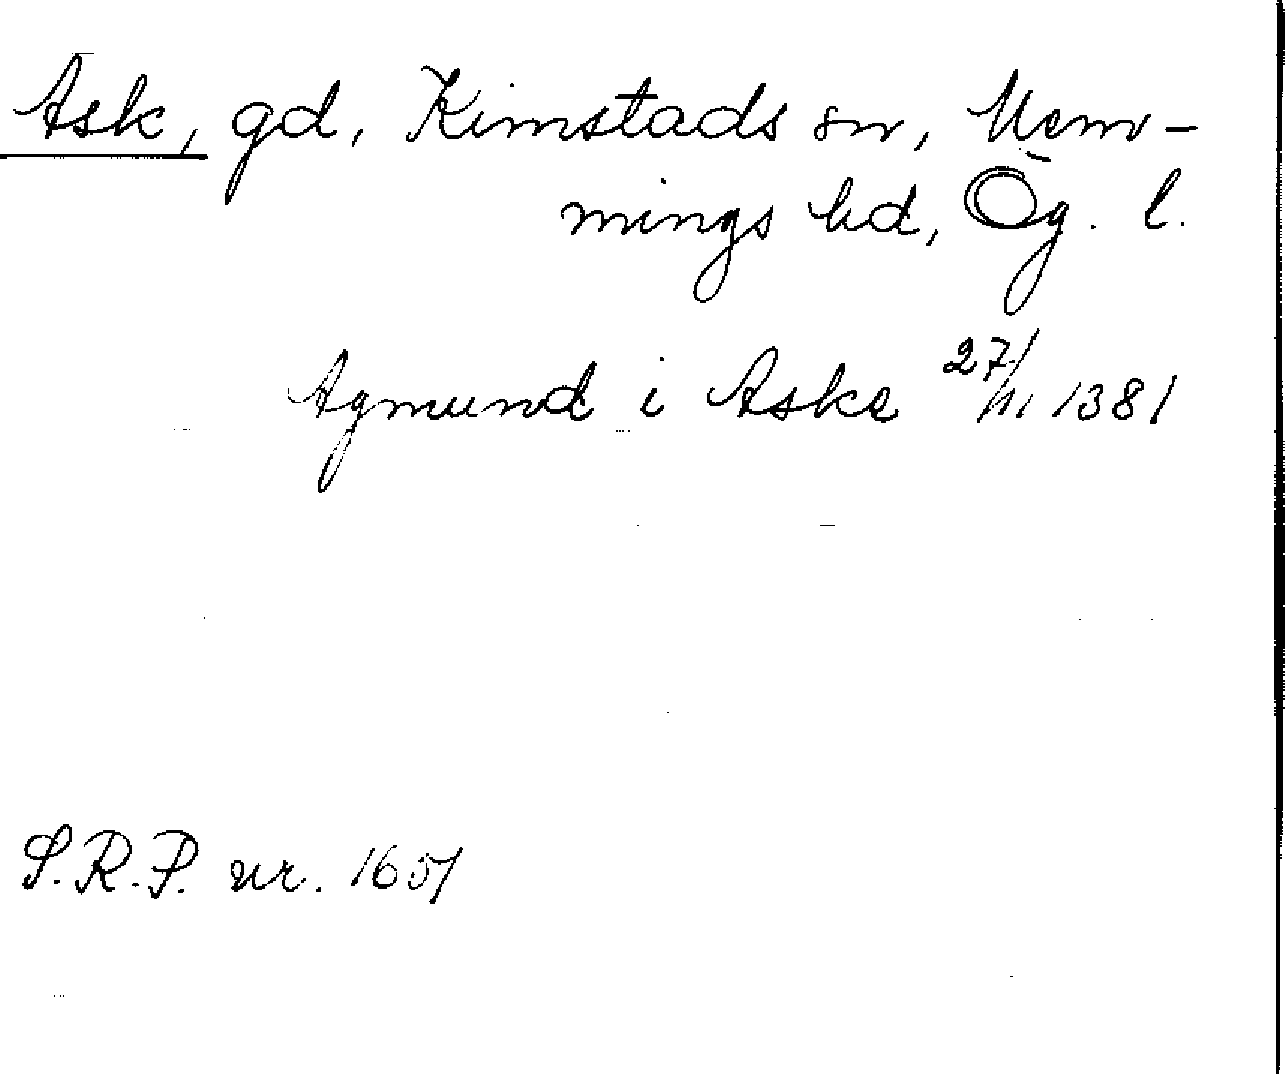 Ask, gd, Kimstads sn, Mem-
mings hd, Ög. l.
Agmund i Aske 27/11 1381
S.R.P. nr. 1651